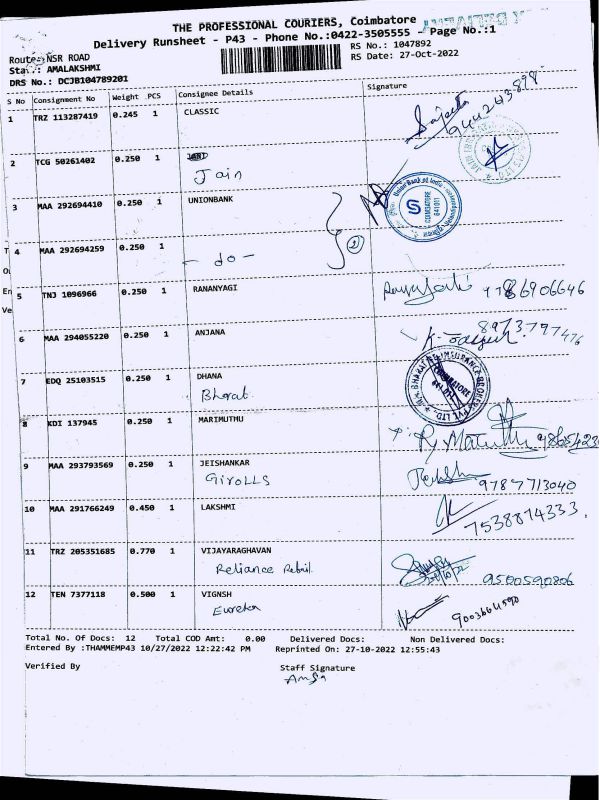 THE PROFESSIONAL COURIERS, Coimbatore
Delivery Runsheet - P43 - Phone No.:0422-3505555 - Page No.:1
Route: NSR ROAD
RS No.: 1047892
Staff: AMALAKSHMI
RS Date: 27-Oct-2022
DRS No.: DCJB104789201
S No Consignment No Weight PCS Consignee Details Signature
1 TRZ 113287419 0.245 1 CLASSIC
2 TCG 50261402 0.250 1
Jain
3 MAA 292694410 0.250 1 UNIONBANK
Union Bank of India
COIMBATORE
641011
4 MAA 292694259 0.250 1
- do - 2
5 TNJ 1096966 0.250 1 RANANYAGI
6 MAA 294055220 0.250 1 ANJANA
8973797476
7 EDQ 25103515 0.250 1 DHANA
Bharat
8 KDI 137945 0.250 1 MARIMUTHU
9 MAA 293793569 0.250 1 JEISHANKAR
Girolls 9787713040
10 MAA 291766249 0.450 1 LAKSHMI
7538874333
11 TRZ 205351685 0.770 1 VIJAYARAGHAVAN
Reliance Retail 9500590806
12 TEN 7377118 0.500 1 VIGNSH
Eureka 9003664590
Total No. Of Docs: 12 Total COD Amt: 0.00 Delivered Docs: Non Delivered Docs:
Entered By :THAMMEMP43 10/27/2022 12:22:42 PM Reprinted On: 27-10-2022 12:55:43
Verified By Staff Signature